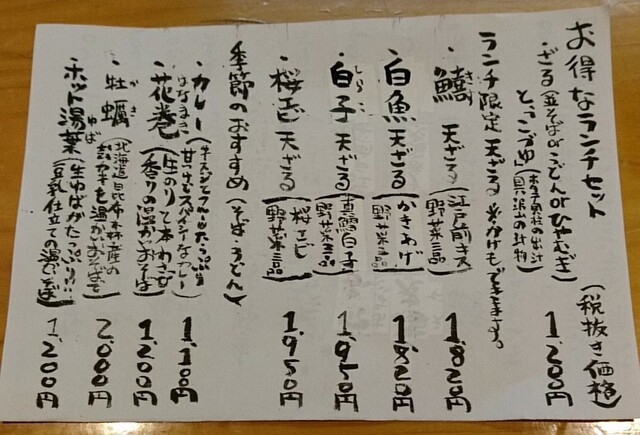 お得なランチセット (税抜き価格)
・ざる(並そばorうどんorひやむぎ) 1,200円
と、「こづゆ」
ランチ限定 天ざる ※かけもできます。
・鱚 天ざる(江戸前キス 野菜三品) 1,820円
きす
・白魚 天ざる(かきあげ 野菜三品) 1,820円
・白子 天ざる(真鱈白子 野菜三品) 1,950円
しらこ
・桜エビ 天ざる(桜エビ 野菜三品) 1,950円
季節のおすすめ(そば・うどん)
・カレー 1,100円
・花巻(生のりと本わさび 香りの温かいおそば) 1,200円
はなまき
・牡蠣(北海道昆布森産の カキを温かいおそばで) 2,000円
かき
・ホット湯葉(生ゆばがたっぷり!! 豆乳仕立ての温そば) 1,200円
ゆば